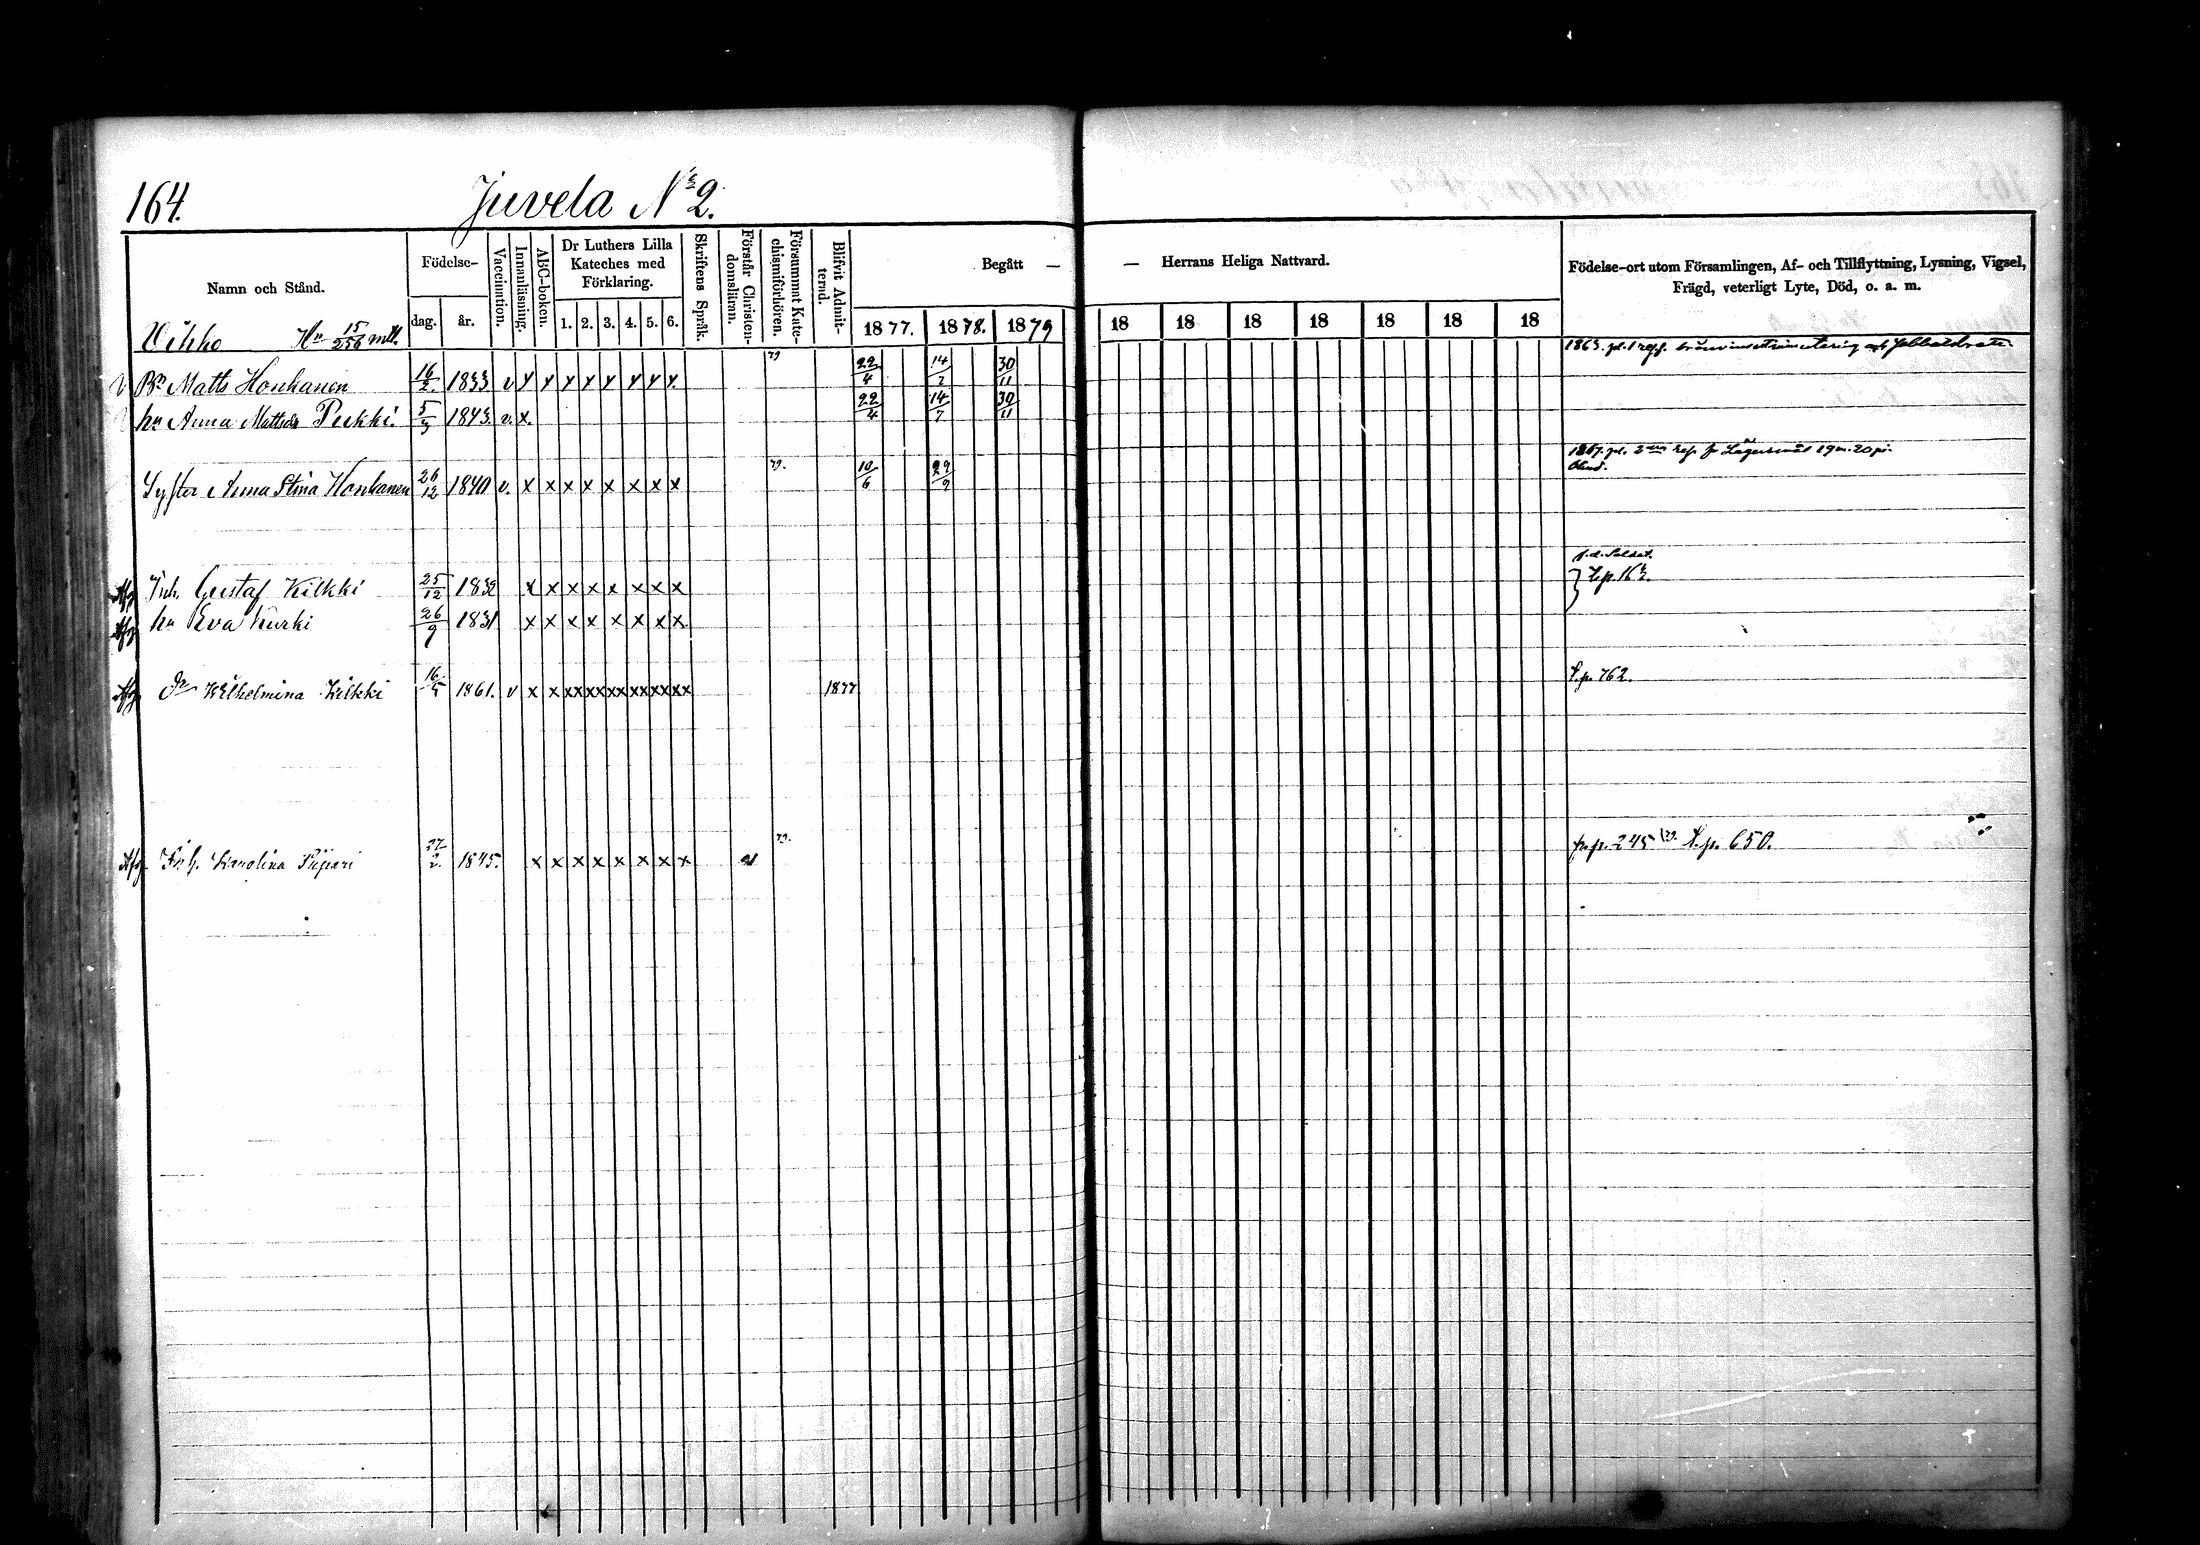 164. Juvela No 2.
Namn och Stånd. Födelse- Vaccination. Innanläsning. ABC-boken. Dr Luthers Lilla Kateches med Förklaring. Skriftens Språk. Förstår Christendomsläran. Försummat Katechismiförhören. Blifvit Admitterad. Begått — — Herrans Heliga Nattvard. Födelse-ort utom Församlingen, Af- och Tillflyttning, Lysning, Vigsel, Frägd, veterligt Lyte, Död, o. a. m.
dag. år. 1. 2. 3. 4. 5. 6. 1877. 1878. 1879 18 18 18 18 18 18 18
Hn 15/256 mtl.
v Bn Matts Honkanen 16/2 1833 v x x x x x x x x 79 22/4 14/7 30/11 1863. pl. 1
hn Anna Mattsdr Pukki. 5/3 1843. v. x. 22/4 14/7 30/11
Syster Anna Stina Honkanen 26/12 1840 v. x x x x x x x x 79. 10/6 29/9 1867. pl.
Inh. Gustaf Kilkki 25/12 1832 x x x x x x x x f. d. Soldat.
hu Eva Kurki 26/9 1831 x x x x x x x x.
Dr Wilhelmina Kilkki 16/4 1861. v x x xx xx xx xx xx xx 1877 t.p. 762.
Inh. Karolina 27/2. 1845. x x x x x x x x 79. fr.p. 245 /79. t.p. 650.